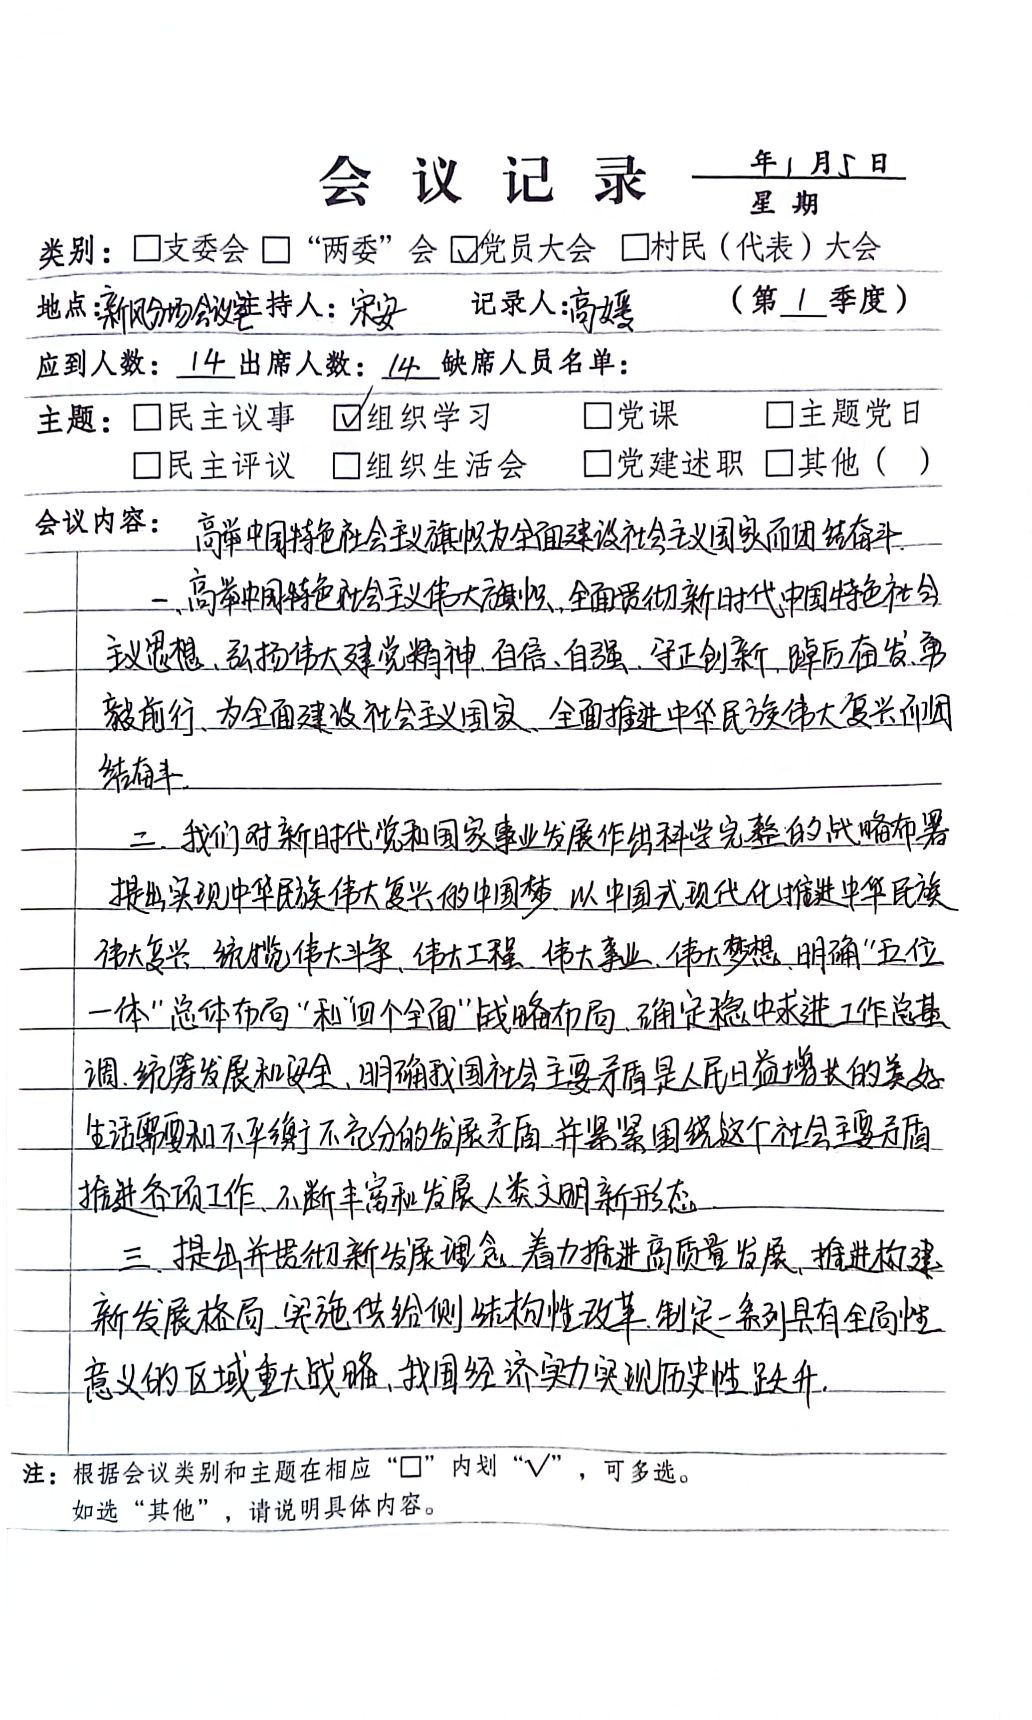 会议记录 年1月5日
星期
类别：□支委会 □“两委”会 ☑党员大会 □村民（代表）大会
地点：新风分场会议室 主持人：宋安 记录人：高媛 （第1季度）
应到人数：14 出席人数：14 缺席人员名单：
主题：□民主议事 ☑组织学习 □党课 □主题党日
□民主评议 □组织生活会 □党建述职 □其他（ ）
会议内容：高举中国特色社会主义旗帜为全面建设社会主义国家而团结奋斗.
一、高举中国特色社会主义伟大旗帜、全面贯彻新时代中国特色社会
主义思想、弘扬伟大建党精神、自信、自强、守正创新、踔厉奋发、勇
毅前行、为全面建设社会主义国家、全面推进中华民族伟大复兴而团
结奋斗.
二、我们对新时代党和国家事业发展作出科学完整的战略布署
提出实现中华民族伟大复兴的中国梦、以中国式现代化推进中华民族
伟大复兴 统揽伟大斗争、伟大工程 伟大事业、伟大梦想、明确“五位
一体”总体布局“和“四个全面”战略布局、确定稳中求进工作总基
调、统筹发展和安全、明确我国社会主要矛盾是人民日益增长的美好
生活需要和不平衡不充分的发展矛盾、并紧紧围绕这个社会主要矛盾
推进各项工作、不断丰富和发展人类文明新形态.
三、提出并贯彻新发展理念、着力推进高质量发展、推进构建
新发展格局、实施供给侧结构性改革、制定一系列具有全局性
意义的区域重大战略、我国经济实力实现历史性跃升.
注：根据会议类别和主题在相应“□”内划“√”，可多选。
如选“其他”，请说明具体内容。